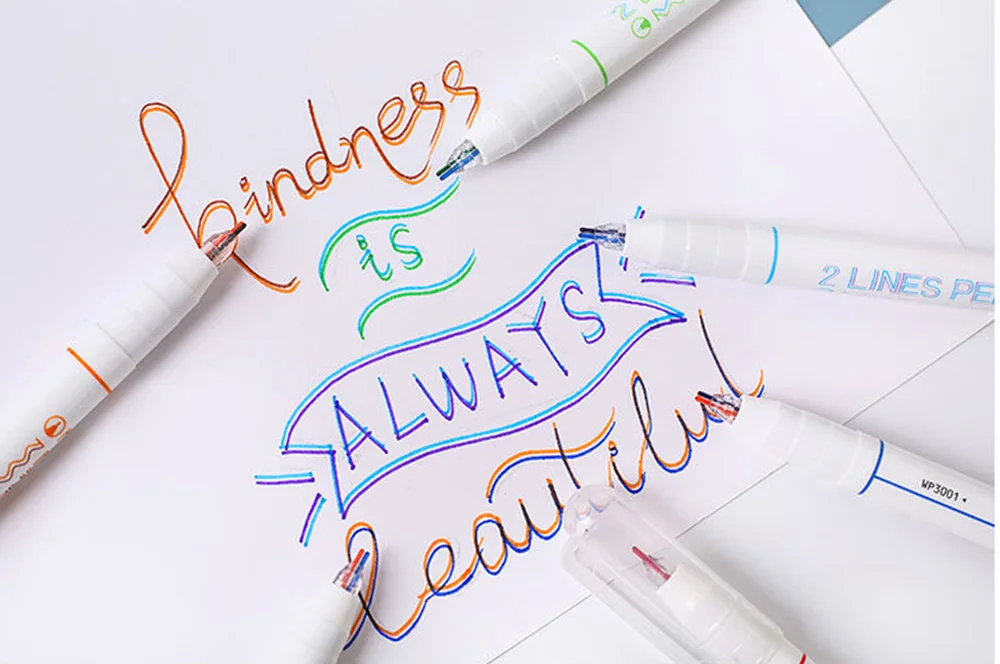 kindness
is
ALWAYS
beautiful
2 LINES PE
WP3001